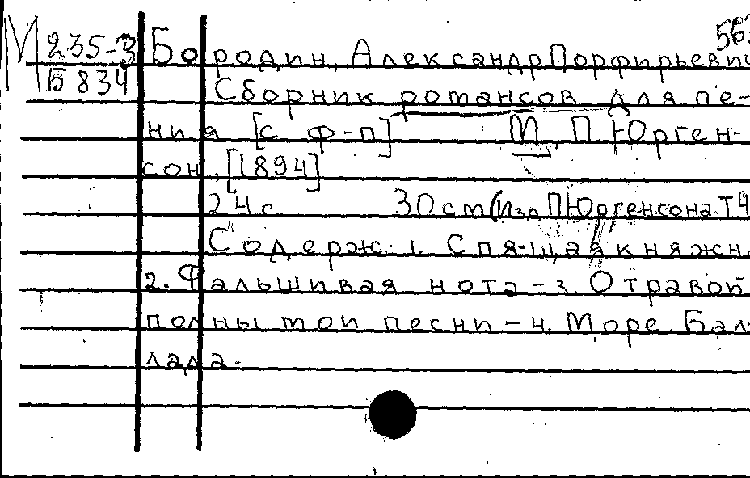 М 235-3 Бородин, Александр Порфирьевич
Б 834 Сборник романсов для пе-
ния [с ф-п] М, П Юрген-
сон, [1894]
24 с 30 см (Изд. П Юргенсона Т 4
Содерж: 1. Спящая княжн
2. Фальшивая нота - 3. Отравой
полны мои песни - 4. Море Бал-
лада.